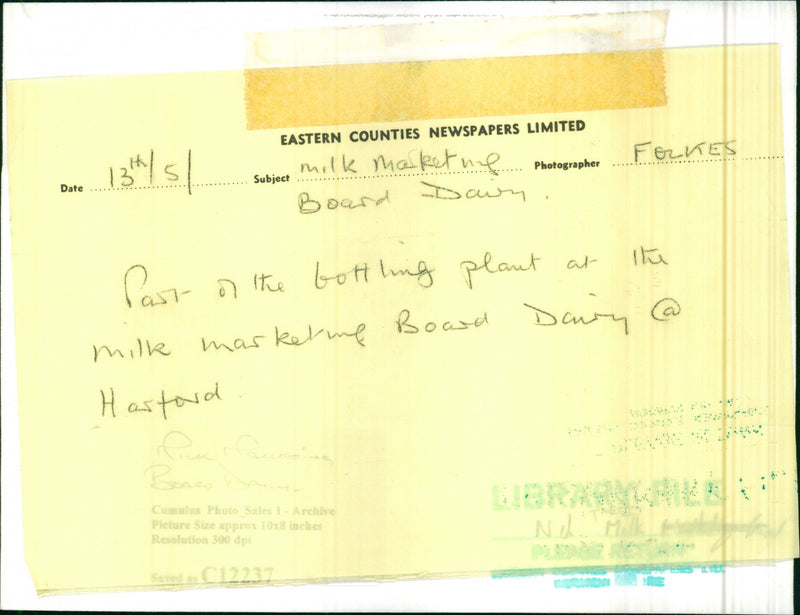 EASTERN COUNTIES NEWSPAPERS LIMITED
Date 13th/5/ Subject Milk Marketing Photographer FOLKES
Board Dairy.
Part of the bottling plant at the
Milk Marketing Board Dairy @
Harford.
Milk Marketing
Board Dairy.
Cumulus Photo Sales 1 - Archive
Picture Size approx 10x8 inches
Resolution 300 dpi
Saved as C12237
LIBRARY FILE
Milk
PLEASE RETURN